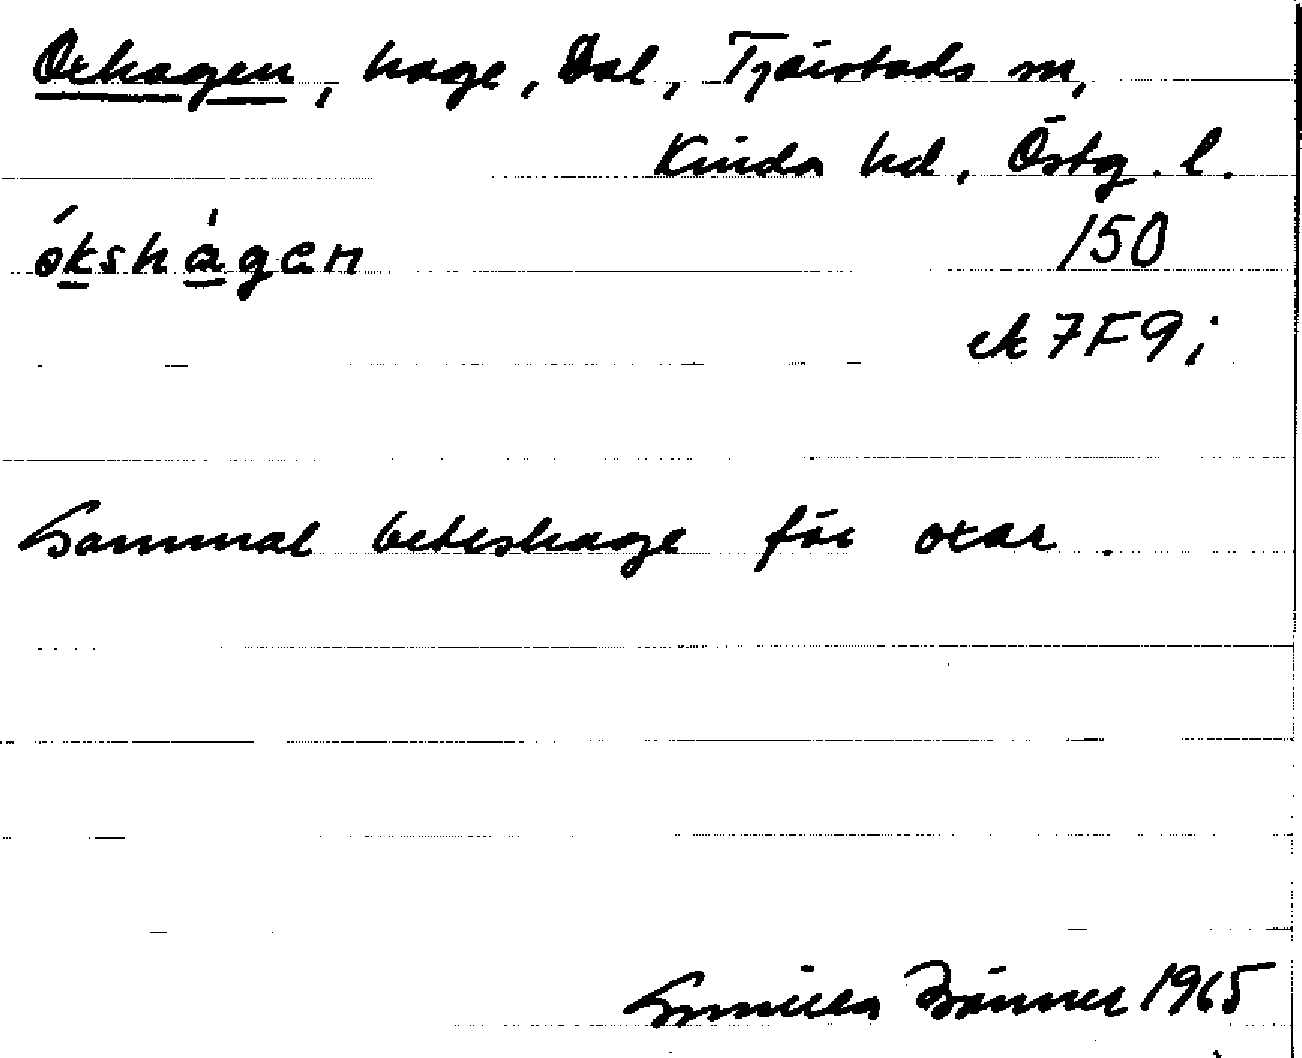 Oxhagen, hage, Dal, Tjärstads sn,
Kinda hd, Östg. l.
ókshàgen 150
ek 7F9i
Gammal beteshage för oxar.
Gunilla Bänner 1965